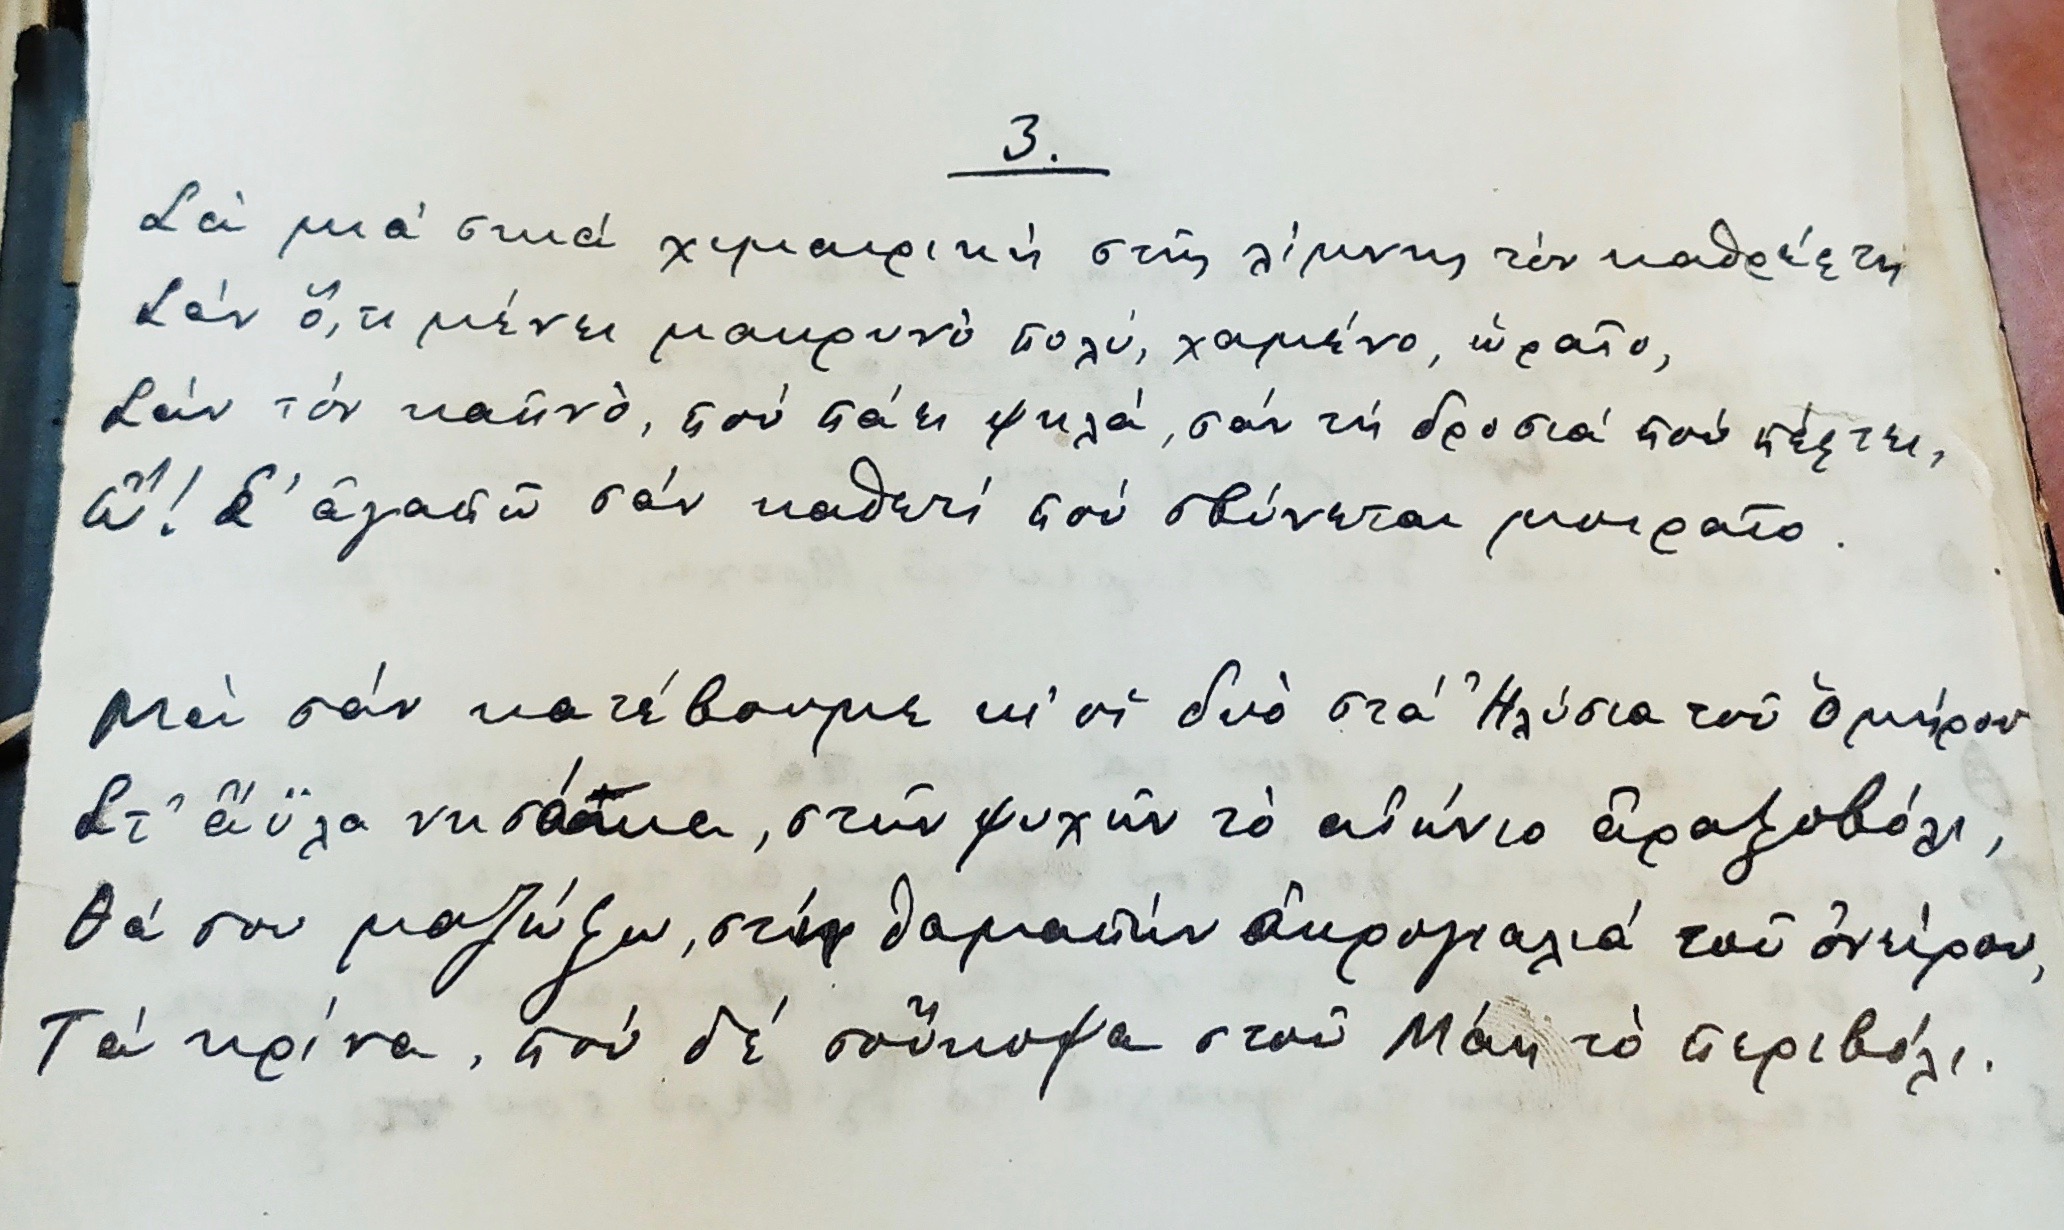 3.
Σὰ μιὰ σκιὰ χιμαιρικὴ στῆς λίμνης τὸν καθρέφτη
Σὰν ὅ,τι μένει μακρυνὸ πολύ, χαμένο, ὡραῖο,
Σὰν τὸν καπνὸ, ποὺ πάει ψηλά, σὰν τὴ δροσιὰ ποὺ πέφτει,
Ὤ! Σ' ἀγαπῶ σὰν καθετὶ ποὺ σβύνεται μοιραῖο.
Μὰ σὰν κατέβουμε κι' οἱ δυὸ στὰ Ἠλύσια τοῦ Ὁμήρου
Στ' ἄϋλα νησάκια, στῶν ψυχῶν τὸ αἰώνιο ἀραξοβόλι,
Θά σου μαζώξω, στὴν θαμπὴν ἀκρογιαλιὰ τοῦ ὀνείρου,
Τὰ κρίνα, ποὺ δέ σοὔκοψα στοῦ Μάη τὸ περιβόλι.